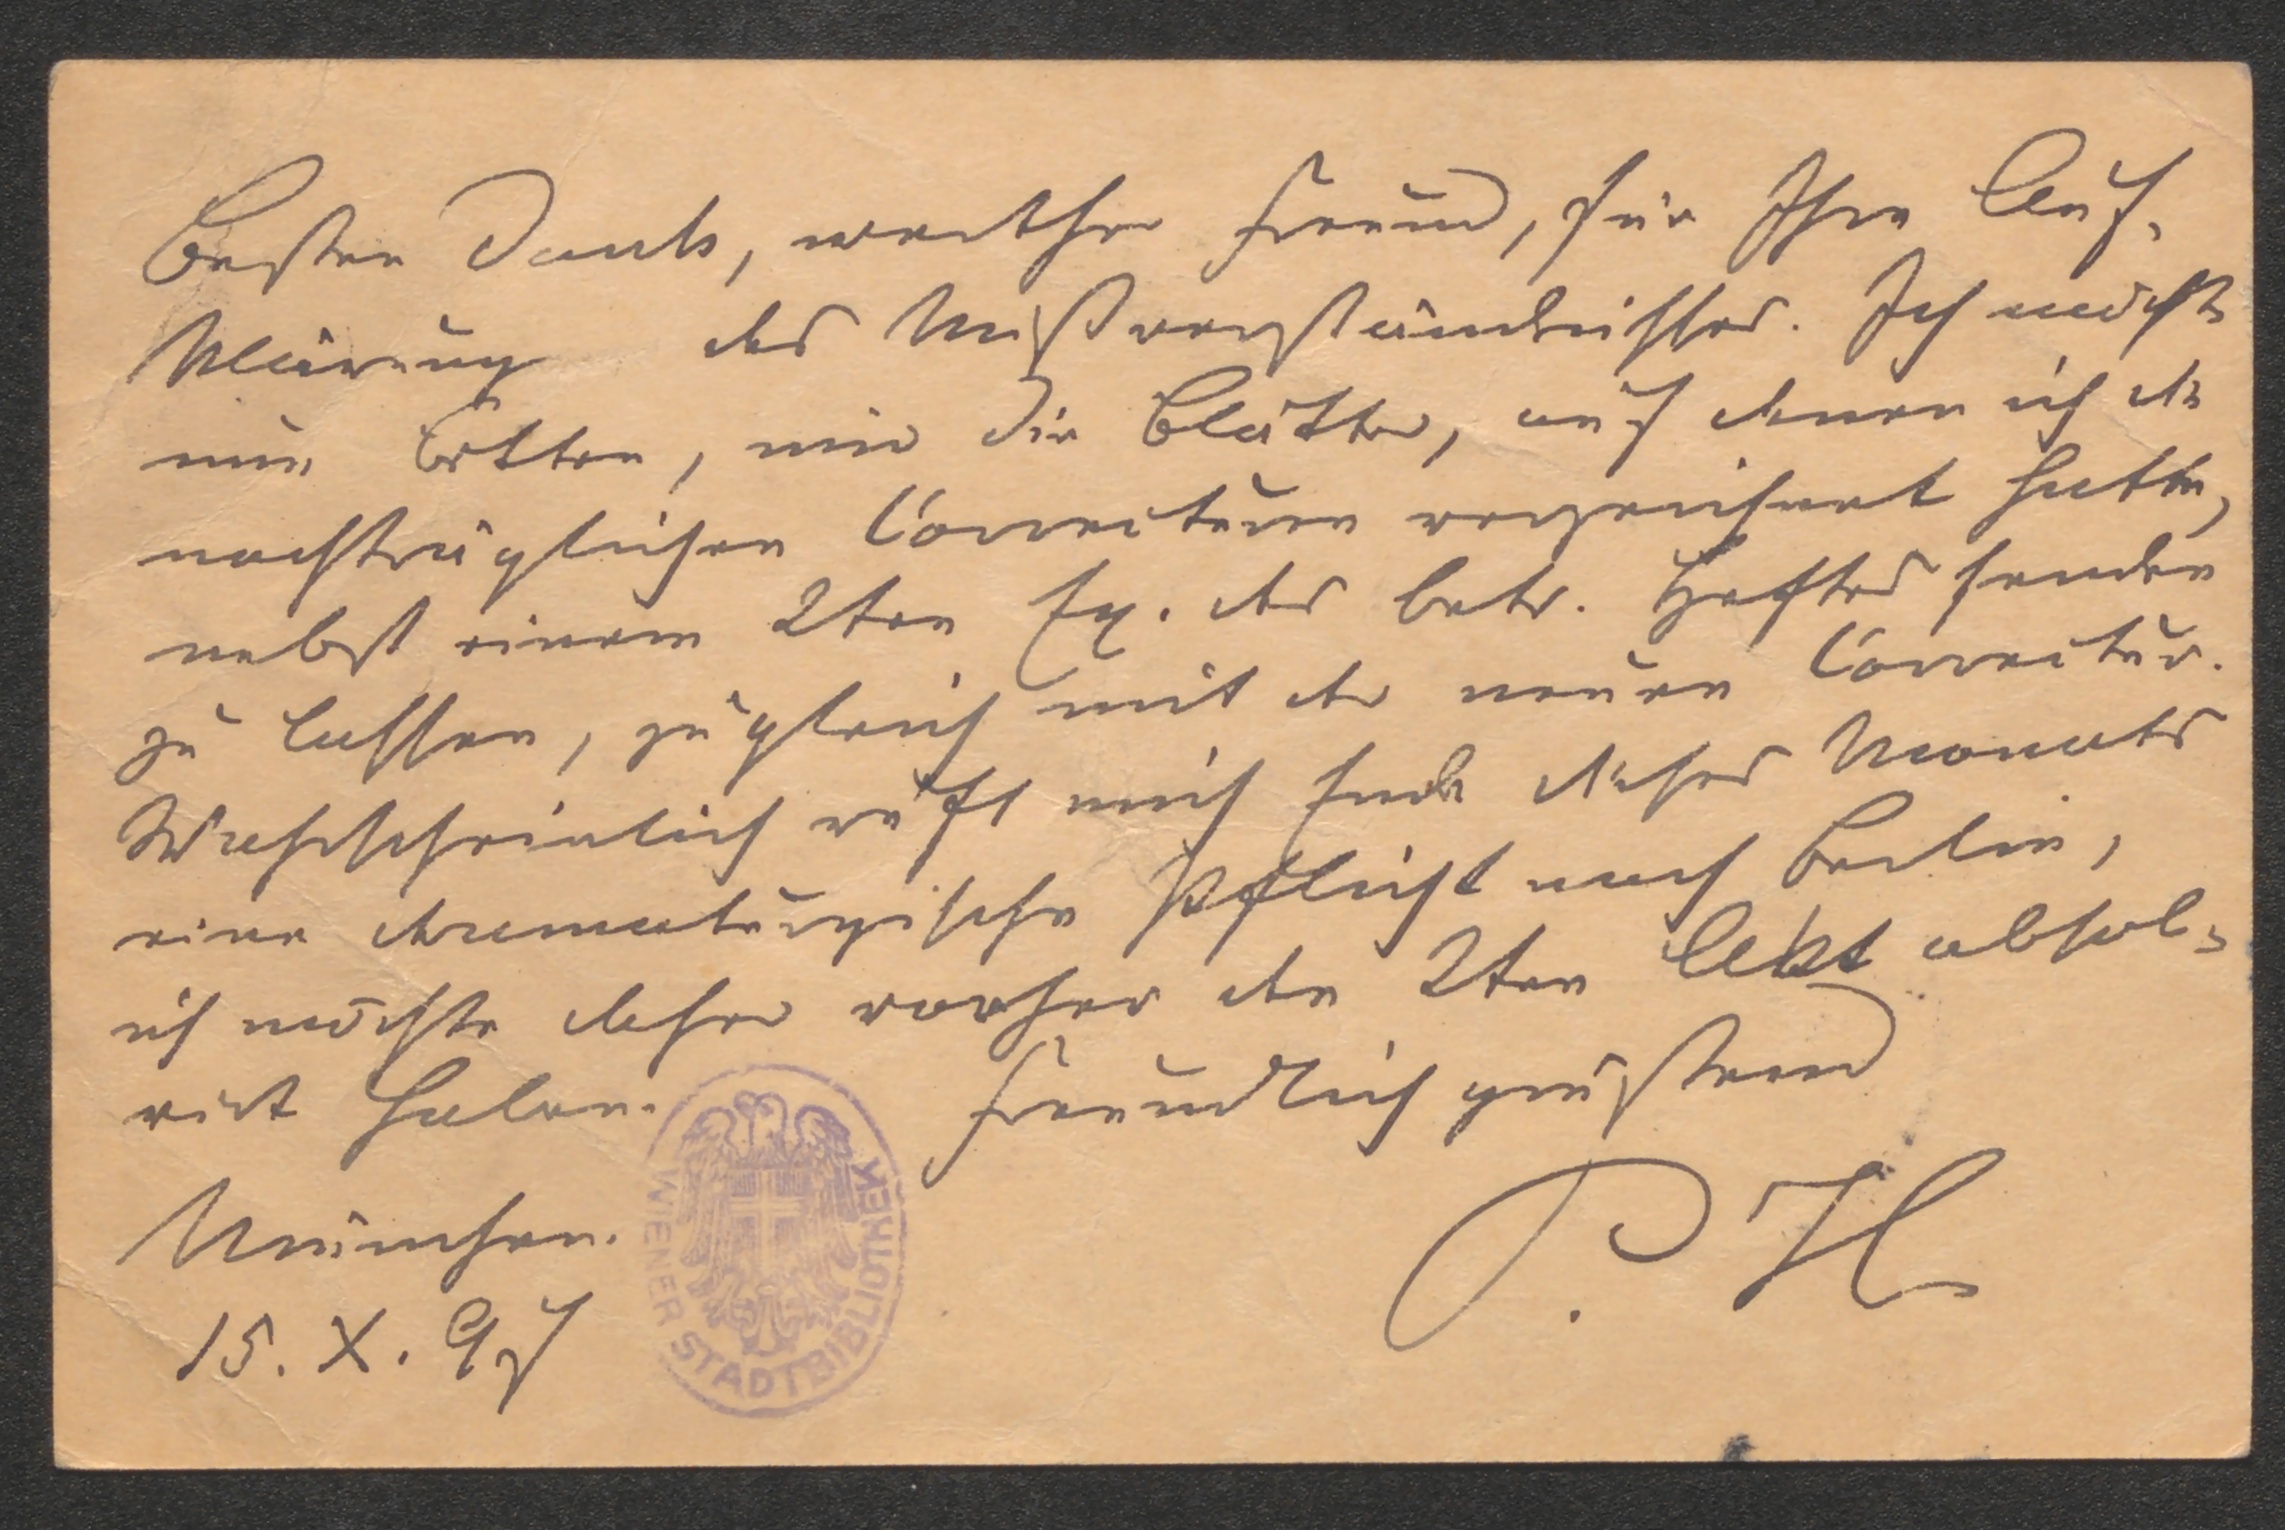 Besten Dank, werther Freund, für Ihre Auf-
klärung des Mißverständnisses. Ich möchte
nun bitten, mir die Blätter, auf denen ich die
nachträglichen Correcturen verzeichnet hatte,
nebst einem 2ten Ex. des betr. Heftes senden
zu lassen, zugleich mit der neuen Correctur.
Wahrscheinlich ruft mich Ende dieses Monats
eine dramaturgische Pflicht nach Berlin,
ich möchte daher vorher den 2ten Akt absol-
virt haben. Freundlich grüßend
P. H.
München.
15. X. 97
WIENER STADTBIBLIOTHEK